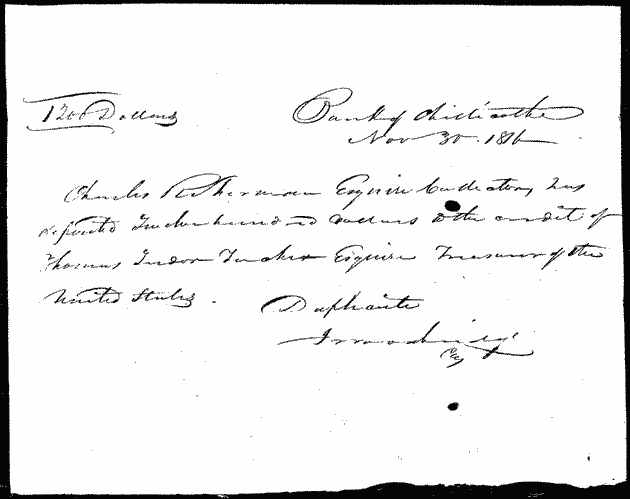 1200 Dollars
Bank of Chillicothe
Nov 30. 1816
Charles R Sherman Esquire Collector, has
deposited Twelve hundred dollars to the credit of
Thomas Tudor Tucker Esquire Treasurer of the
United States.
Duplicate
J Woodbridge
Cas